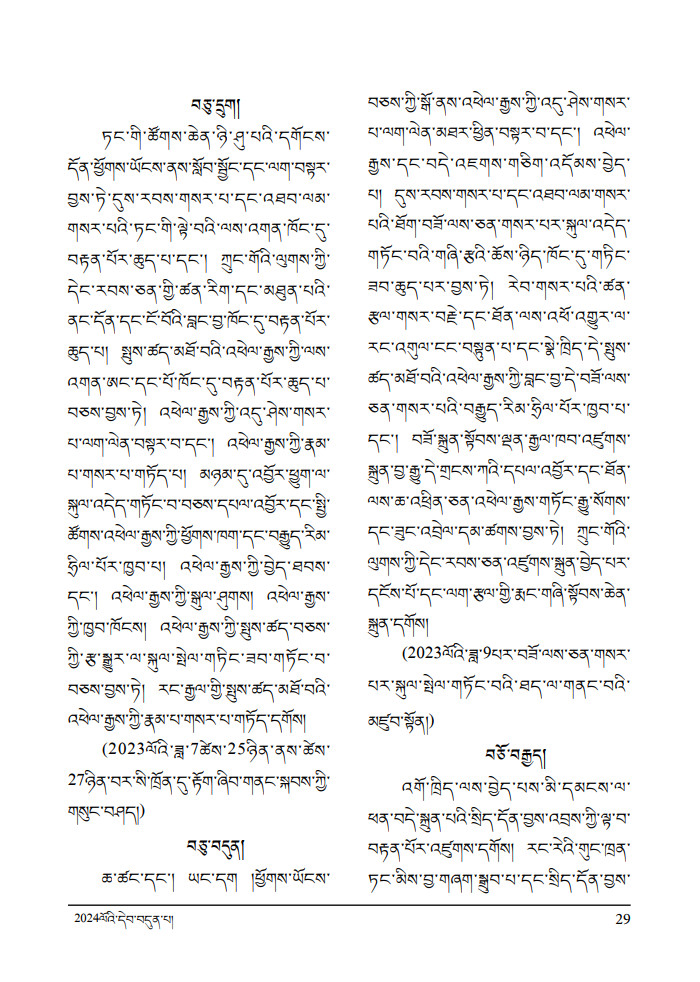 བཅུ་དྲུག།
ཏང་གི་ཚོགས་ཆེན་ཉི་ཤུ་པའི་དགོངས་
དོན་ཕྱོགས་ཡོངས་ནས་སློབ་སྦྱོང་དང་ལག་བསྟར་
བྱས་ཏེ་དུས་རབས་གསར་པ་དང་འཐབ་ལམ་
གསར་པའི་ཏང་གི་ལྟེ་བའི་ལས་འགན་ཁོང་དུ་
བརྟན་པོར་ཆུད་པ་དང་། ཀྲུང་གོའི་ལུགས་ཀྱི་
དེང་རབས་ཅན་གྱི་ཚན་རིག་དང་མཐུན་པའི་
ནང་དོན་དང་ངོ་བོའི་བླང་བྱ་ཁོང་དུ་བརྟན་པོར་
ཆུད་པ། སྤུས་ཚད་མཐོ་བའི་འཕེལ་རྒྱས་ཀྱི་ལས་
འགན་ཨང་དང་པོ་ཁོང་དུ་བརྟན་པོར་ཆུད་པ་
བཅས་བྱས་ཏེ། འཕེལ་རྒྱས་ཀྱི་འདུ་ཤེས་གསར་
པ་ལག་ལེན་བསྟར་བ་དང་། འཕེལ་རྒྱས་ཀྱི་རྣམ་
པ་གསར་པ་གཏོད་པ། མཉམ་དུ་འབྱོར་ཕྱུག་ལ་
སྐུལ་འདེད་གཏོང་བ་བཅས་དཔལ་འབྱོར་དང་སྤྱི་
ཚོགས་འཕེལ་རྒྱས་ཀྱི་ཕྱོགས་ཁག་དང་བརྒྱུད་རིམ་
ཧྲིལ་པོར་ཁྱབ་པ། འཕེལ་རྒྱས་ཀྱི་བྱེད་ཐབས་
དང་། འཕེལ་རྒྱས་ཀྱི་སྒུལ་ཤུགས། འཕེལ་རྒྱས་
ཀྱི་ཁྱབ་ཁོངས། འཕེལ་རྒྱས་ཀྱི་སྤུས་ཚད་བཅས་
ཀྱི་རྩ་སྒྱུར་ལ་སྐུལ་སྤེལ་གཏིང་ཟབ་གཏོང་བ་
བཅས་བྱས་ཏེ། རང་རྒྱལ་གྱི་སྤུས་ཚད་མཐོ་བའི་
འཕེལ་རྒྱས་ཀྱི་རྣམ་པ་གསར་པ་གཏོད་དགོས།
(2023ལོའི་ཟླ་7ཚེས་25ཉིན་ནས་ཚེས་
27ཉིན་བར་སི་ཁྲོན་དུ་རྟོག་ཞིབ་གནང་སྐབས་ཀྱི་
གསུང་བཤད།)
བཅུ་བདུན།
ཆ་ཚང་དང་། ཡང་དག །ཕྱོགས་ཡོངས་
བཅས་ཀྱི་སྒོ་ནས་འཕེལ་རྒྱས་ཀྱི་འདུ་ཤེས་གསར་
པ་ལག་ལེན་མཐར་ཕྱིན་བསྟར་བ་དང་། འཕེལ་
རྒྱས་དང་བདེ་འཇགས་གཅིག་འདོམས་བྱེད་
པ། དུས་རབས་གསར་པ་དང་འཐབ་ལམ་གསར་
པའི་ཐོག་བཟོ་ལས་ཅན་གསར་པར་སྐུལ་འདེད་
གཏོང་བའི་གཞི་རྩའི་ཆོས་ཉིད་ཁོང་དུ་གཏིང་
ཟབ་ཆུད་པར་བྱས་ཏེ། རེབ་གསར་པའི་ཚན་
རྩལ་གསར་བརྗེ་དང་ཐོན་ལས་འཕོ་འགྱུར་ལ་
རང་འགུལ་ངང་བསྟུན་པ་དང་སྣེ་ཁྲིད་དེ་སྤུས་
ཚད་མཐོ་བའི་འཕེལ་རྒྱས་ཀྱི་བླང་བྱ་དེ་བཟོ་ལས་
ཅན་གསར་པའི་བརྒྱུད་རིམ་ཧྲིལ་པོར་ཁྱབ་པ་
དང་། བཟོ་སྐྲུན་སྟོབས་ལྡན་རྒྱལ་ཁབ་འཛུགས་
སྐྲུན་བྱ་རྒྱུ་དེ་གྲངས་ཀའི་དཔལ་འབྱོར་དང་ཐོན་
ལས་ཆ་འཕྲིན་ཅན་འཕེལ་རྒྱས་གཏོང་རྒྱུ་སོགས་
དང་ཟུང་འབྲེལ་དམ་ཚགས་བྱས་ཏེ། ཀྲུང་གོའི་
ལུགས་ཀྱི་དེང་རབས་ཅན་འཛུགས་སྐྲུན་བྱེད་པར་
དངོས་པོ་དང་ལག་རྩལ་གྱི་རྨང་གཞི་སྟོབས་ཆེན་
སྐྲུན་དགོས།
(2023ལོའི་ཟླ་9པར་བཟོ་ལས་ཅན་གསར་
པར་སྐུལ་སྤེལ་གཏོང་བའི་ཐད་ལ་གནང་བའི་
མཛུབ་སྟོན།)
བཅོ་བརྒྱད།
འགོ་ཁྲིད་ལས་བྱེད་པས་མི་དམངས་ལ་
ཕན་བདེ་སྐྲུན་པའི་སྲིད་དོན་བྱས་འབྲས་ཀྱི་ལྟ་བ་
བརྟན་པོར་འཛུགས་དགོས། རང་རེའི་གུང་ཁྲན་
ཏང་མིས་བྱ་གཞག་སྒྲུབ་པ་དང་སྲིད་དོན་བྱས་
2024ལོའི་དེབ་བདུན་པ།
29